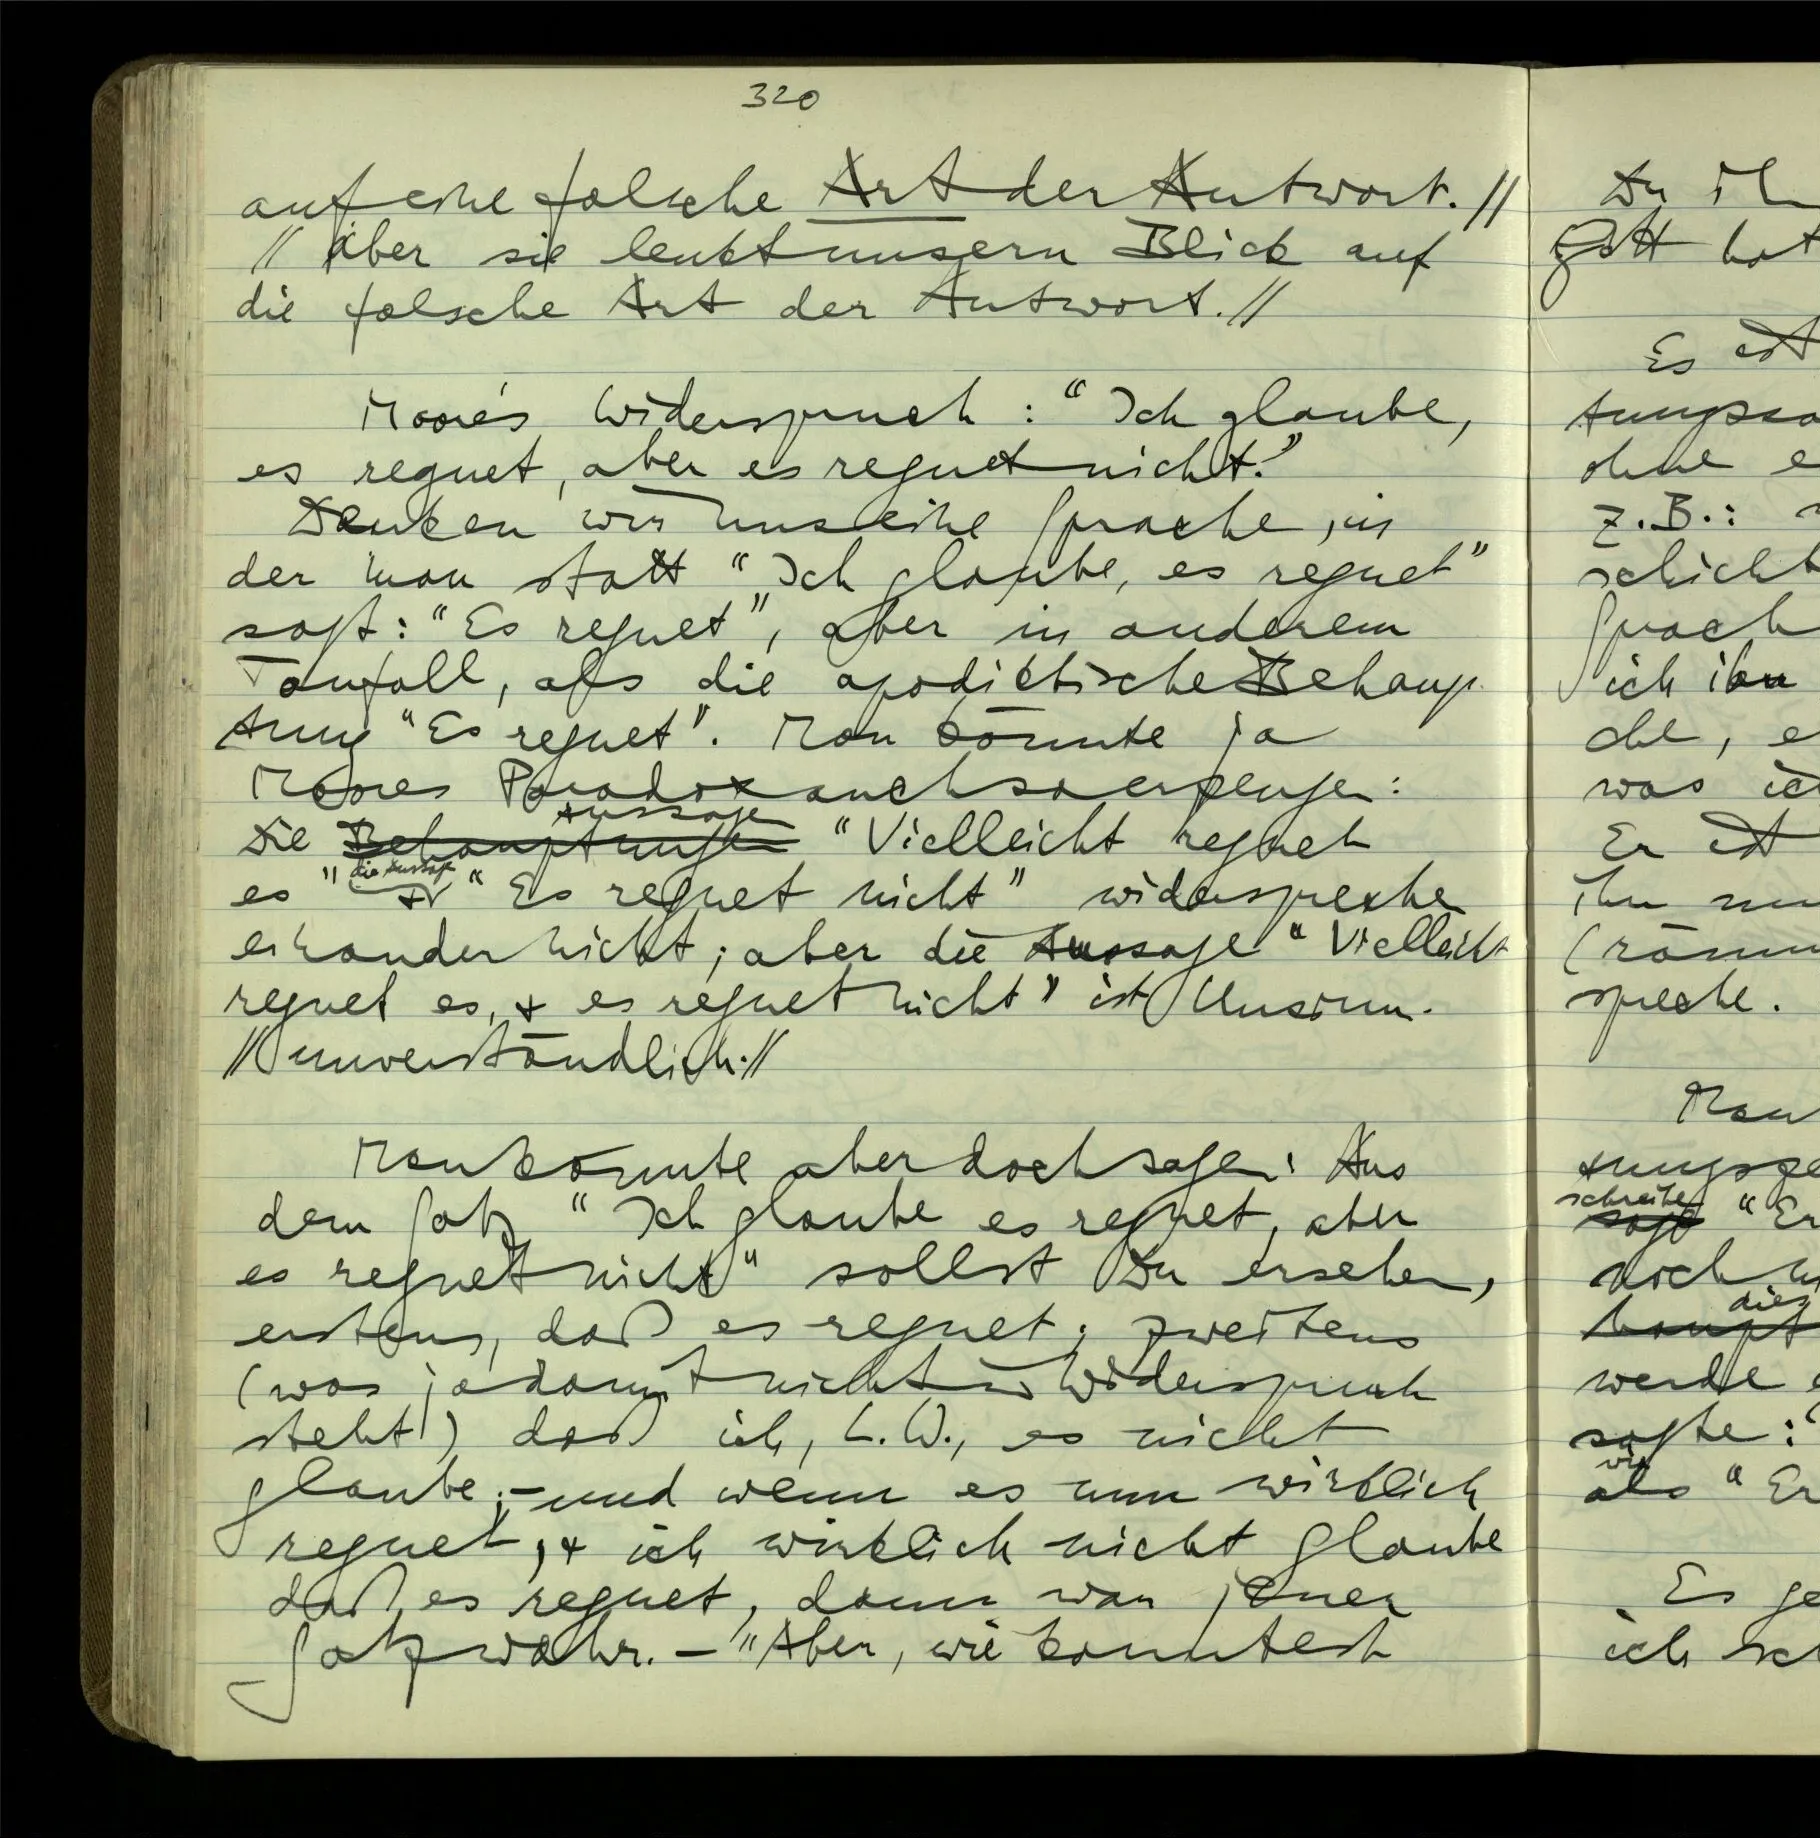 320
auf eine falsche Art der Antwort. //
// Aber sie lenkt unsern Blick auf
die falsche Art der Antwort. //
Moore's Widerspruch : "Ich glaube,
es regnet, aber es regnet nicht."
Denken wir uns eine Sprache, in
der man statt "Ich glaube, es regnet"
sagt: "Es regnet", aber in anderem
Tonfall, als die apodiktische Behaup
tung "Es regnet". Man könnte ja
Moores Paradox auch so erzeugen:
Aussage
Die Behauptungen "Vielleicht regnet
die Aussage
es" & "Es regnet nicht" widerspreche
einander nicht; aber die Aussage "Vielleicht
regnet es, & es regnet nicht" ist Unsinn.
// unverständlich. //
Man könnte aber doch sagen: Aus
dem Satz "Ich glaube es regnet, aber
es regnet nicht" sollst Du ersehen,
erstens, daß es regnet; zweitens
(was ja damit nicht in Widerspruch
steht) daß ich, L.W., es nicht
glaube; – und wenn es nun wirklich
regnet, & ich wirklich nicht glaube
daß es regnet, dann war jener
Satz wahr. – "Aber, wie konntest
Du ih
Gott hat
Es ist
tungssa
ohne e
z.B.:
schicht
Sprach
ich ihn
che, e
was ich
Er ist
ihn nu
(räum
spreche.
Man
tungsge
schreibe
sage "Er
noch
dies
haupt
werde
sagte: "
wie
als "Er
Es ge
ich sc